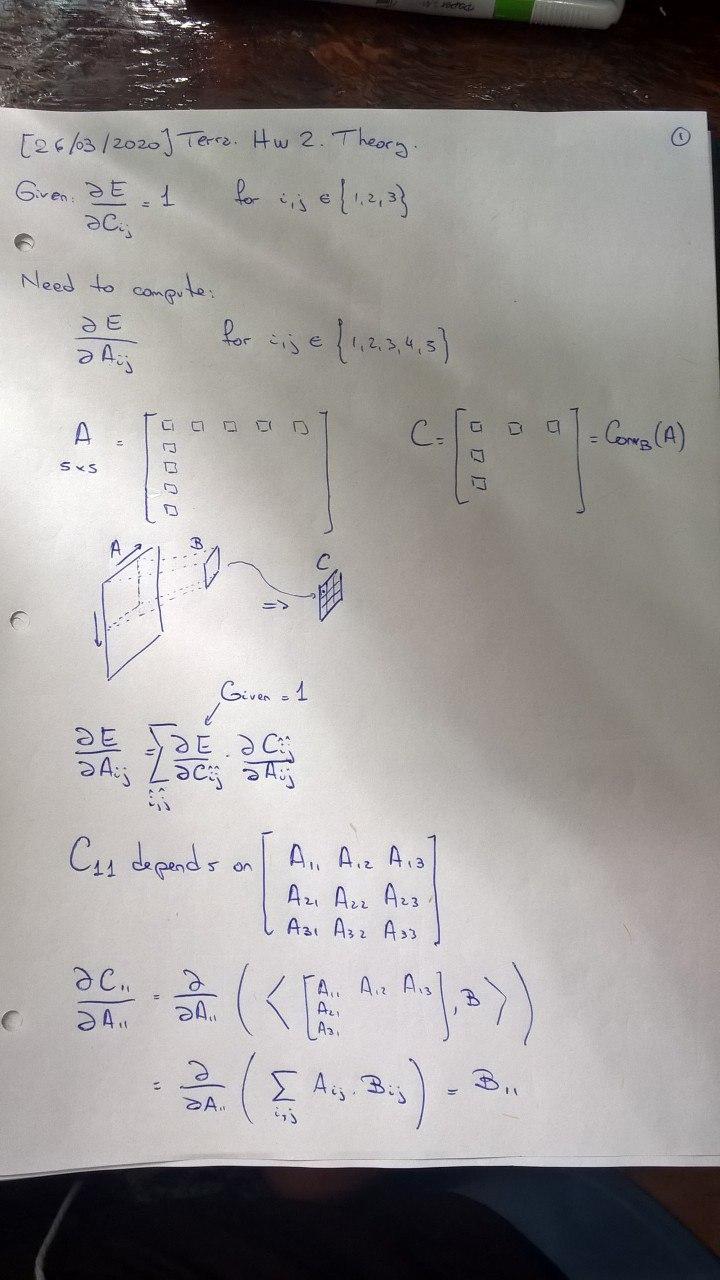 [26/03/2020] Terra. Hw 2. Theory. ①
Given: ∂E/∂Cij = 1 for i,j ∈ {1,2,3}
Need to compute:
∂E/∂Aij for i,j ∈ {1,2,3,4,5}
A 5x5 = [□ □ □ □ □ □ □ □ □] C = [□ □ □ □ □] = ConvB(A)
A B C
=>
Given = 1
∂E/∂Aij = Σî,ĵ ∂E/∂Cîĵ · ∂Cîĵ/∂Aij
C11 depends on [A11 A12 A13
A21 A22 A23
A31 A32 A33]
∂C11/∂A11 = ∂/∂A11 (<[A11 A12 A13
A21
A31], B>)
= ∂/∂A11 (Σi,j Aij · Bij) = B11